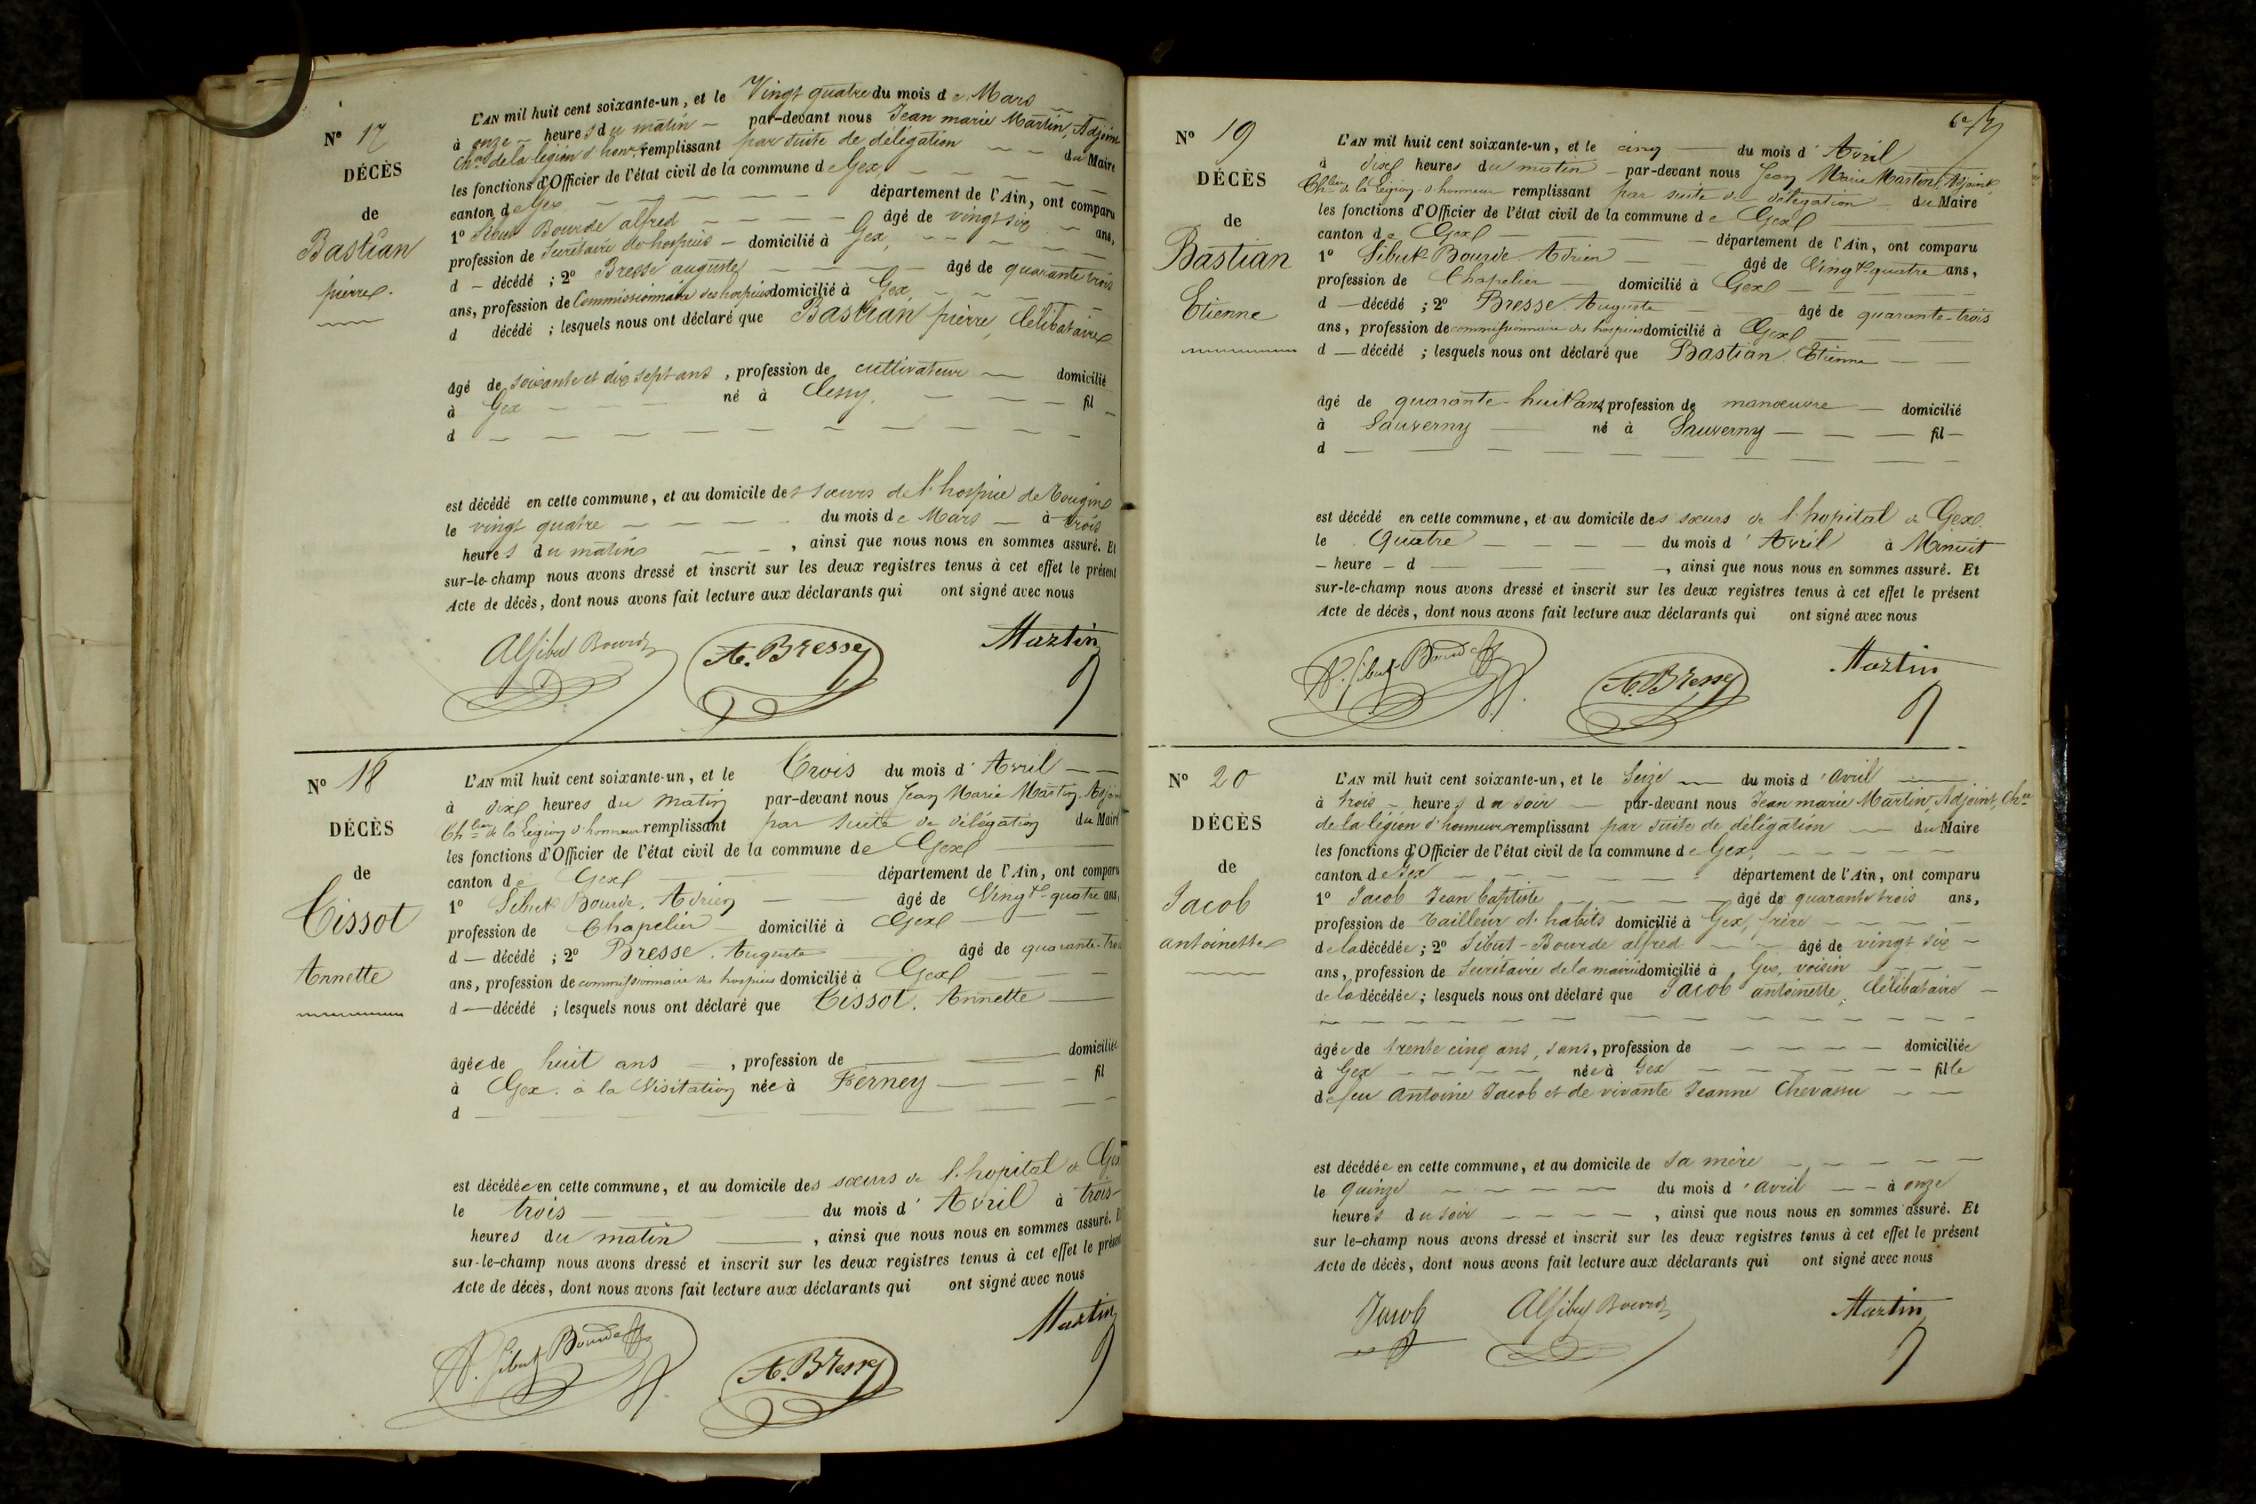 N° 17
DÉCÈS
de
Bastian
pierre.
L'AN mil huit cent soixante-un, et le Vingt quatre du mois de Mars
à onze heures du matin par-devant nous Jean marie Martin, Adjoint
de la légion d'honr remplissant par suite de délégation du Maire
les fonctions d'Officier de l'état civil de la commune de Gex,
canton de Gex département de l'Ain, ont comparu
1° Sibut Bourde alfred âgé de vingt six ans,
profession de Secrétaire de hospices domicilié à Gex,
d décédé ; 2° Bresse auguste âgé de quarante trois
ans, profession de Commissionnaire des hospices domicilié à Gex,
d décédé ; lesquels nous ont déclaré que Bastian pierre, Célibataire
âgé de soixante et dix sept ans, profession de cultivateur domicilié
à Gex né à Cessy, fil
d
est décédé en cette commune, et au domicile des sœurs de l'hospice de Tougin
le vingt quatre du mois de Mars à trois
heures du matin, ainsi que nous nous en sommes assuré. Et
sur-le-champ nous avons dressé et inscrit sur les deux registres tenus à cet effet le présent
Acte de décès, dont nous avons fait lecture aux déclarants qui ont signé avec nous
Alf Sibut Bourde A. Bresse Martin
N° 18
DÉCÈS
de
Tissot
Annette
L'AN mil huit cent soixante-un, et le Trois du mois d'Avril
à dix heures du matin par-devant nous Jean Marie Martin, Adjoint
Chlier de la Légion d'honneur remplissant par suite de délégation du Maire
les fonctions d'Officier de l'état civil de la commune de Gex
canton de Gex département de l'Ain, ont comparu
1° Sibut Bourde, Adrien âgé de Vingt-quatre ans,
profession de Chapelier domicilié à Gex
d décédé ; 2° Bresse, Auguste âgé de quarante-trois
ans, profession de commissionnaire des hospices domicilié à Gex
d décédé ; lesquels nous ont déclaré que Tissot, Annette
âgée de huit ans, profession de domiciliée
à Gex, à la Visitation née à Ferney fil
d
est décédée en cette commune, et au domicile des sœurs de l'hopital de Gex
le trois du mois d'Avril à trois
heures du matin, ainsi que nous nous en sommes assuré. Et
sur-le-champ nous avons dressé et inscrit sur les deux registres tenus à cet effet le présent
Acte de décès, dont nous avons fait lecture aux déclarants qui ont signé avec nous
A. Sibut Bourde A. Bresse Martin
N° 19
DÉCÈS
de
Bastian
Etienne
L'AN mil huit cent soixante-un, et le cinq du mois d'Avril
à dix heures du matin par-devant nous Jean Marie Martin, Adjoint
Chlier de la Légion d'honneur remplissant par suite de délégation du Maire
les fonctions d'Officier de l'état civil de la commune de Gex
canton de Gex département de l'Ain, ont comparu
1° Sibut Bourde, Adrien âgé de Vingt-quatre ans,
profession de Chapelier domicilié à Gex
d décédé ; 2° Bresse, Auguste âgé de quarante-trois
ans, profession de commissionnaire des hospices domicilié à Gex
d décédé ; lesquels nous ont déclaré que Bastian, Etienne
âgé de quarante-huit ans, profession de manœuvre domicilié
à Sauverny né à Sauverny fil
d
est décédé en cette commune, et au domicile des sœurs de l'hopital de Gex
le Quatre du mois d'Avril à Minuit
heure d, ainsi que nous nous en sommes assuré. Et
sur-le-champ nous avons dressé et inscrit sur les deux registres tenus à cet effet le présent
Acte de décès, dont nous avons fait lecture aux déclarants qui ont signé avec nous
A. Sibut Bourde A. Bresse Martin
N° 20
DÉCÈS
de
Jacob
antoinette
L'AN mil huit cent soixante-un, et le Seize du mois d'avril
à trois heures du soir par-devant nous Jean marie Martin, Adjoint, Cher
de la légion d'honneur remplissant par suite de délégation du Maire
les fonctions d'Officier de l'état civil de la commune de Gex,
canton de Gex département de l'Ain, ont comparu
1° Jacob Jean baptiste âgé de quarante trois ans,
profession de Tailleur d'habits domicilié à Gex, frère
de la décédée ; 2° Sibut-Bourde alfred âgé de vingt six
ans, profession de Secrétaire de la mairie domicilié à Gex, voisin
de la décédée ; lesquels nous ont déclaré que Jacob antoinette, Célibataire
âgée de trente cinq ans, sans, profession de domiciliée
à Gex née à Gex fille
de feu Antoine Jacob et de vivante Jeanne Chevassu
est décédée en cette commune, et au domicile de sa mère
le quinze du mois d'avril à onze
heures du soir, ainsi que nous nous en sommes assuré. Et
sur le-champ nous avons dressé et inscrit sur les deux registres tenus à cet effet le présent
Acte de décès, dont nous avons fait lecture aux déclarants qui ont signé avec nous
Jacob Alf Sibut Bourde Martin